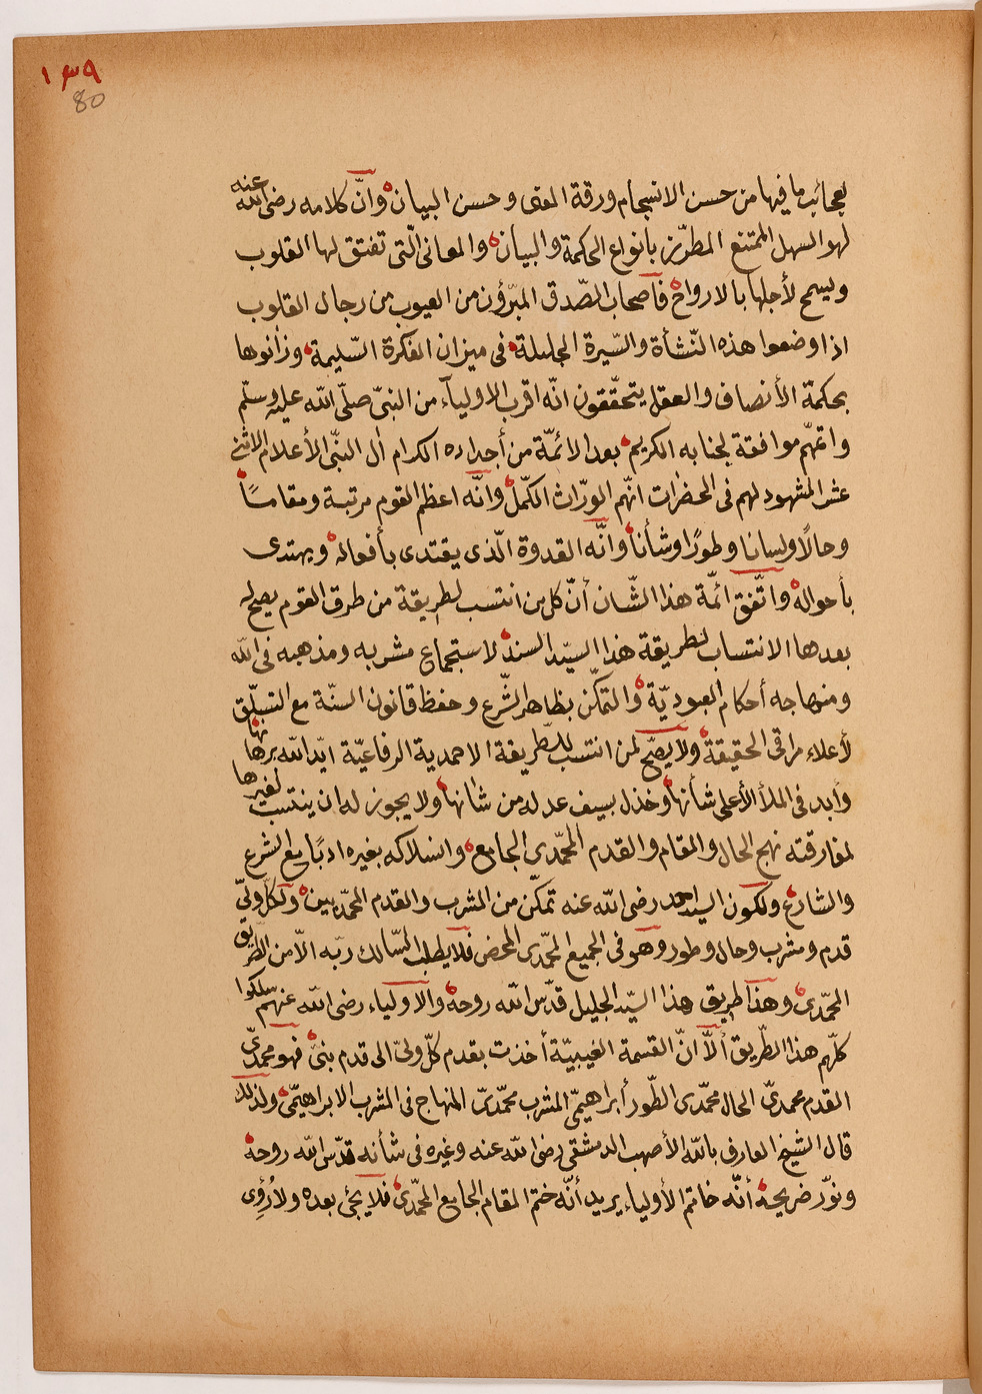 ١٣٩
80
بعجائب ما فيها من حسن الانسجام ورقة المعنى وحسن البيان وانّ كلامه رضى الله عنه
لهو السهل الممتنع المطرّز بانواع الحكمة والبيان والمعانى الّتى تفتق لها القلوب
ويسمح لأجلها بالارواح فأصحاب الصّدق المبرّؤن من العيوب من رجال القلوب
اذا وضعوا هذه النّشأة والسّيرة الجليلة فى ميزان الفكرة السّليمة وزانوها
بحكمة الأنصاف والعقل يتحقّقون انّه اقرب الاوليآء من النبىّ صلّى الله عليه وسلّم
واتمّهم موافقة لجنابه الكريم بعد الائمّة من أجداده الكرام ال النّبى الأعلام الاثنى
عشر المشهود لهم فى الحضرات انّهم الورّاث الكمّل وانّه اعظم القوم مرتبة ومقامًا
وحالًا ولسانا وطورًا وشأنا وانّه القدوة الّذى يقتدى بأفعاله ويهتدى
بأحواله واتّفق ائمّة هذا الشّان أنّ كل من انتسب لطريقة من طرق القوم يصح له
بعدها الانتساب لطريقة هذا السيّد السند لاستجماع مشربه ومذهبه فى الله
ومنهاجه أحكام العبوديّة والتمكّن بظاهر الشّرع وحفظ قانون السنّة مع التسلّق
لأعلاء مراقى الحقيقة ولا يصحّ لمن انتسب للطّريقة الاحمدية الرفاعيّة ايّد الله برهانها
وأبد فى الملأ الأعلى شأنها وخذل بسيف عدله من شانها ولا يجوز له ان ينتسب لغيرها
لمفارقته نهج الحال والمقام والقدم المحمّدى الجامع وانسلاكه بغيره ادبًا مع الشرع
والشارع ولكون السيد احمد رضى الله عنه تمكّن من المشرب والقدم المحمّديين ولكلّ ولىّ
قدم ومشرب وحال وطور وهو فى الجميع المحمّدى المحض فلا يطلب السّالك ربّه الّا من الطّريق
المحمّدى وهذا طريق هذا السيّد الجليل قدّس الله روحه والاولياء رضى الله عنهم سلكوا
كلّهم هذا الطّريق ألّا انّ القسمة الغيبيّة أخذت بقدم كلّ ولىّ الى قدم نبىّ فهو محمدىّ
القدم محمدىّ الحال محمّدى الطّور أبراهيمىّ المشرب محمّدىّ المنهاج فى المشرب الابراهيمّى ولذلك
قال الشيخ العارف بالله الأصهب الدمشقى رضى الله عنه وغيره فى شأنه قدّس الله روحه
ونوّر ضريحه أنّه خاتم الأولياء يريد أنّه ختم المقام الجامع المحمّدى فلا يجئ بعده ولا رُؤِى